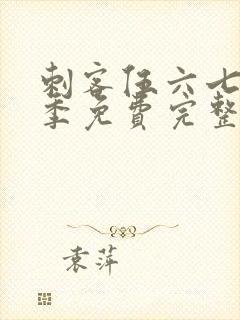 刺客伍六七
季免费完整
袁萍